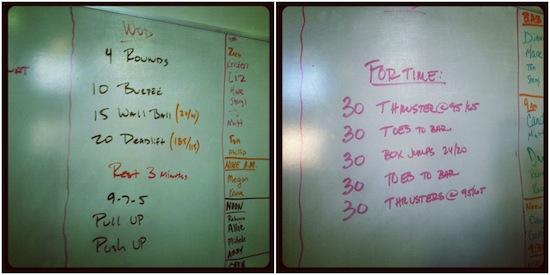 WOD
4 ROUNDS
10 BURPEE
15 WALL BALL (20/14)
20 DEADLIFT (185/115)
REST 3 MINUTES
9-7-5
PULL UP
PUSH UP
ZACH
LIZ
MATT
TOM
PHILLIP
NINE A.M.
MEGAN
NOON
REBECCA
ALLIE
MICHELE
ABBY
FOR TIME:
30 THRUSTER @ 95/65
30 TOES TO BAR
30 BOX JUMPS 24/20
30 TOES TO BAR
30 THRUSTERS @ 95/65
MATT
NOON